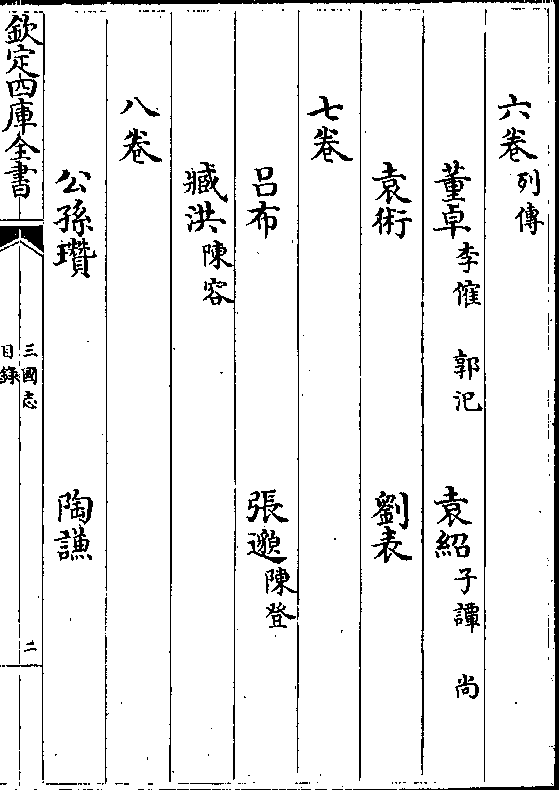 六卷列傳
董卓李傕 郭汜 袁紹子譚 尚
袁術 劉表
七卷
呂布 張邈陳登
臧洪陳容
八卷
公孫瓚 陶謙
欽定四庫全書
三國志
目錄
二